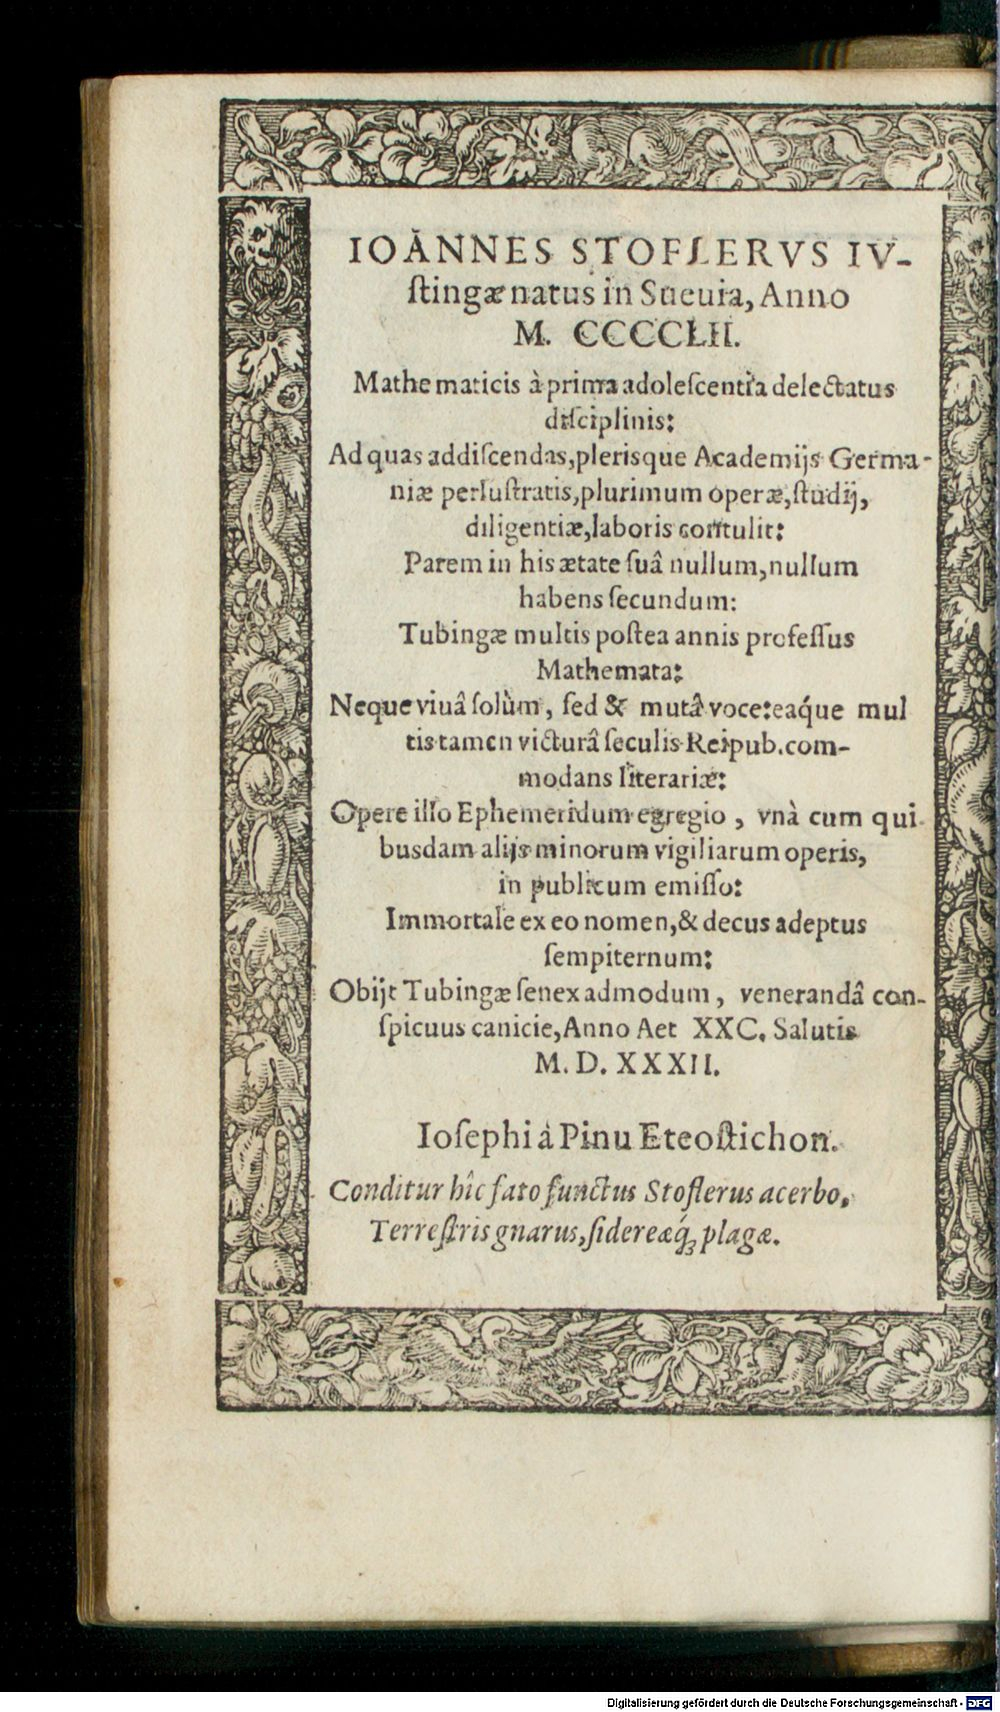 IOANNES STOFLERVS IV-
ſtingæ natus in Sueuia, Anno
M. CCCCLII.
Mathematicis à prima adoleſcentia delectatus
diſciplinis:
Ad quas addiſcendas, plerisque Academijs Germa-
niæ perluſtratis, plurimum operæ, ſtudij,
diligentiæ, laboris contulit:
Parem in his ætate ſuâ nullum, nullum
habens ſecundum:
Tubingæ multis poſtea annis profeſſus
Mathemata:
Neque viuâ ſolùm, ſed & mutâ voce: eáque mul
tis tamen victurâ ſeculis Reipub. com-
modans literariæ:
Opere illo Ephemeridum egregio, vnà cum qui
busdam alijs minorum vigiliarum operis,
in publicum emiſſo:
Immortale ex eo nomen, & decus adeptus
ſempiternum:
Obijt Tubingæ ſenex admodum, venerandâ con-
ſpicuus canicie, Anno Aet XXC. Salutis
M. D. XXXII.
Ioſephi à Pinu Eteoſtichon.
Conditur hîc fato functus Stoflerus acerbo,
Terreſtris gnarus, ſidereæq́ꝫ plagæ.
Digitalisierung gefördert durch die Deutsche Forschungsgemeinschaft - DFG